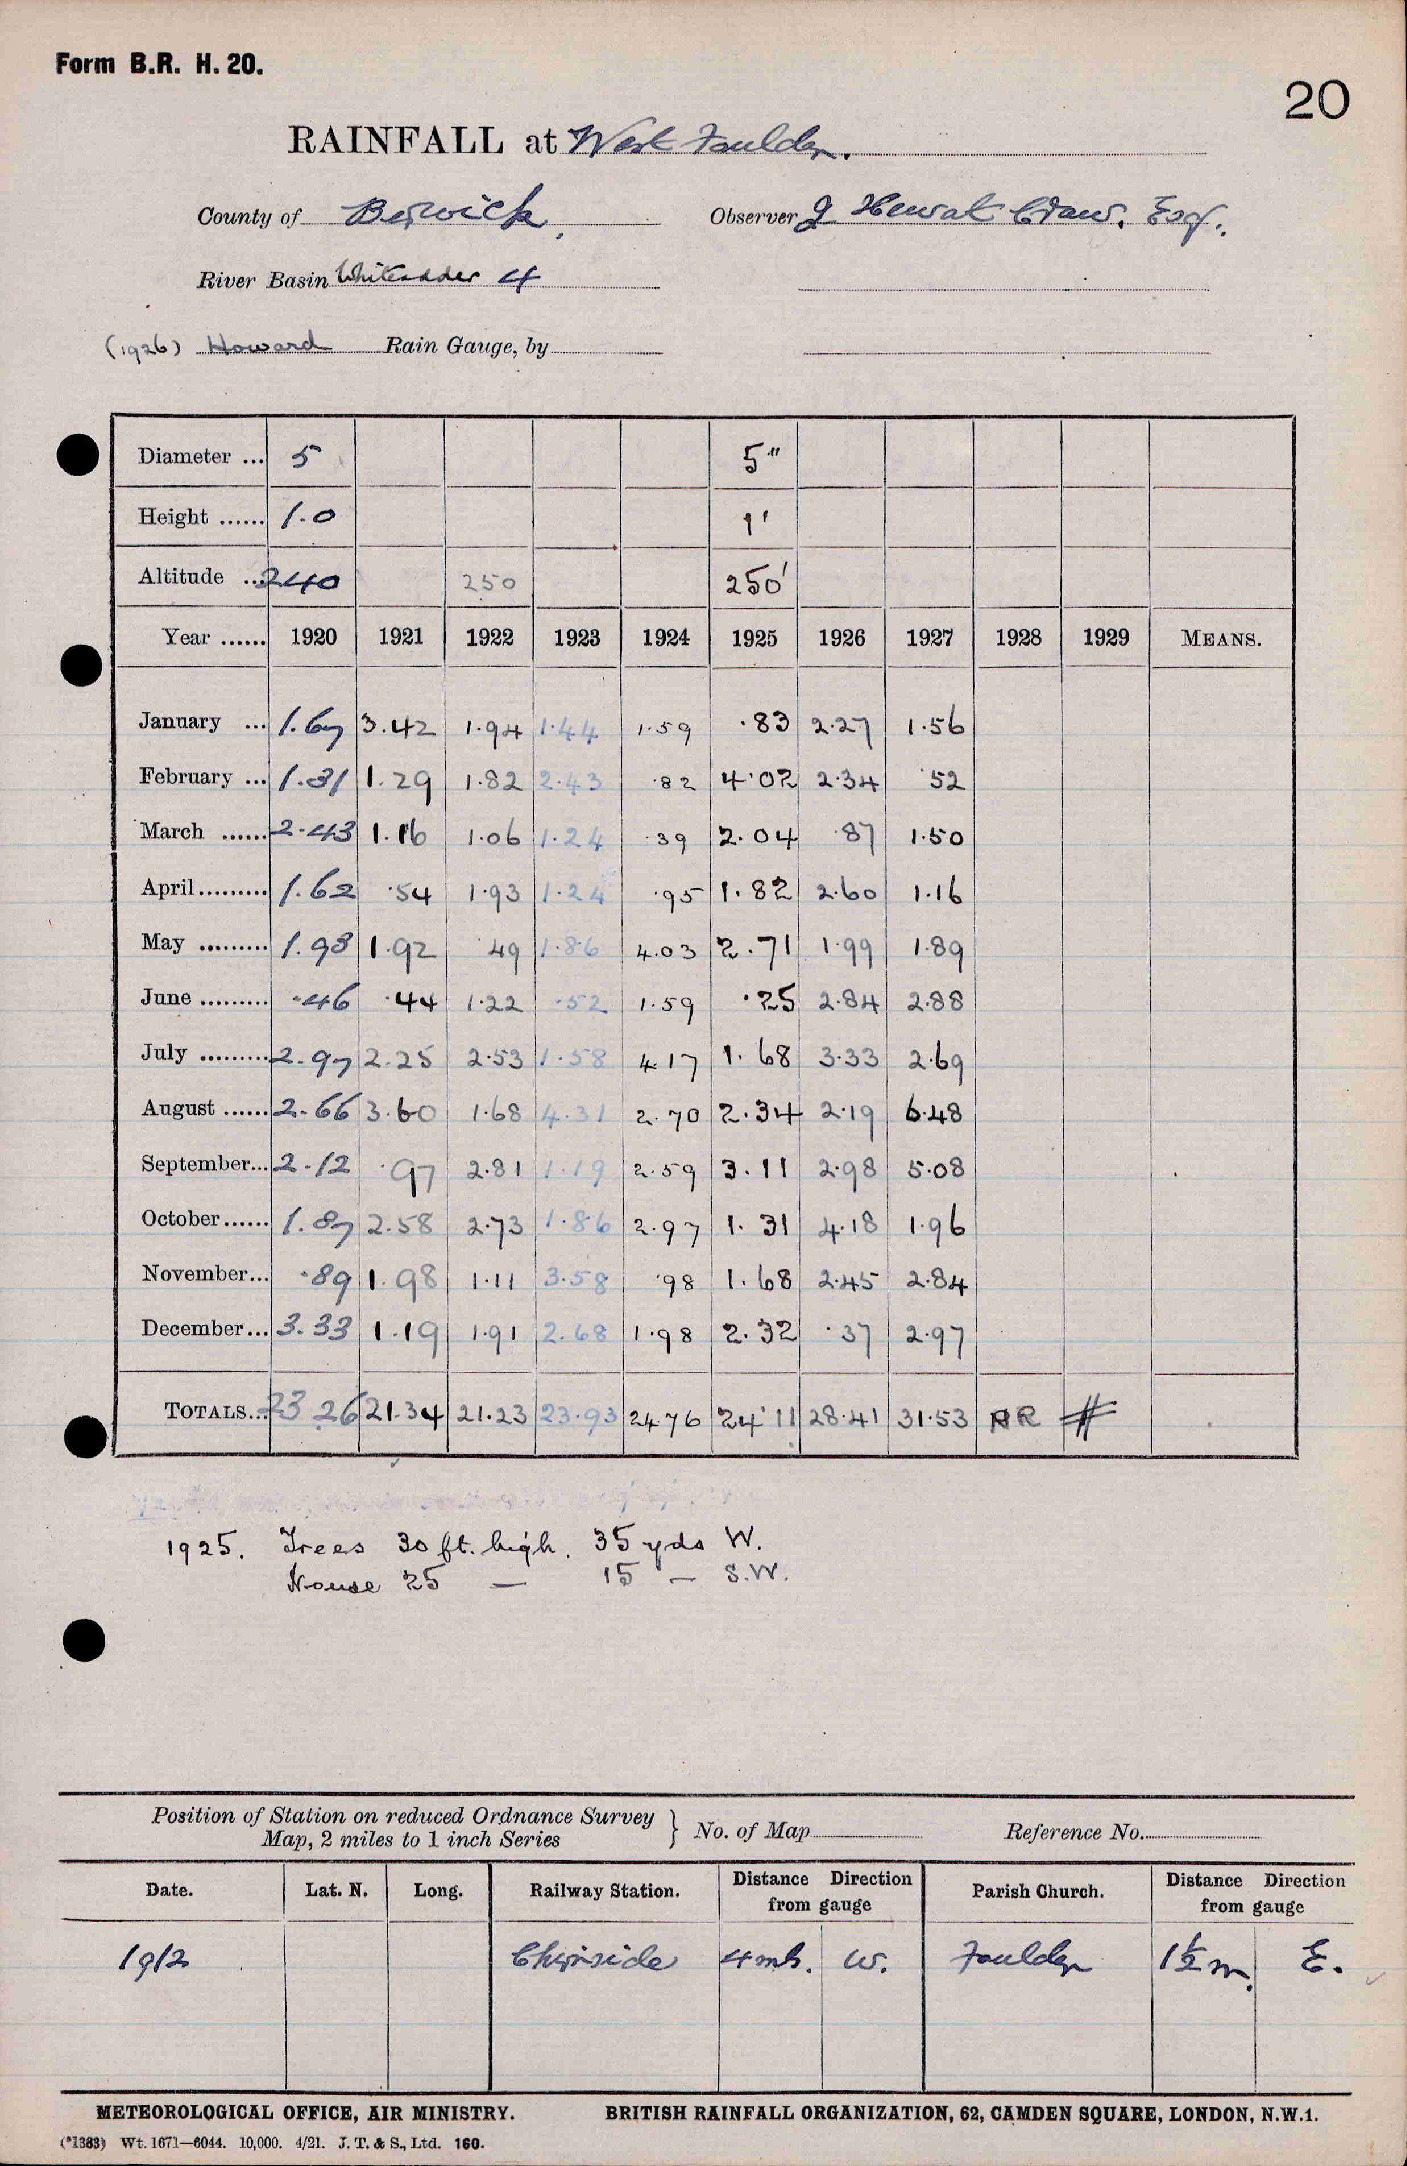 Form B.R. H. 20.
20
RAINFALL at West Foulden.
County of Berwick. Observer J Hewat Craw, Esq.
River Basin Whiteadder 4
(1926) Howard Rain Gauge, by
Diameter ... 5 5"
Height ...... 1.0 1'
Altitude ... 240 250 250'
Year ...... 1920 1921 1922 1923 1924 1925 1926 1927 1928 1929 MEANS.
January ... 1.67 3.42 1.94 1.44 1.59 .83 2.27 1.56
February ... 1.31 1.29 1.82 2.43 .82 4.02 2.34 .52
March ...... 2.43 1.16 1.06 1.24 .39 2.04 .87 1.50
April ......... 1.62 .54 1.93 1.24 .95 1.82 2.60 1.16
May ......... 1.93 1.92 .49 1.86 4.03 2.71 1.99 1.89
June ......... .46 .44 1.22 .52 1.59 .25 2.84 2.88
July ......... 2.97 2.25 2.53 1.58 4.17 1.68 3.33 2.69
August ...... 2.66 3.60 1.68 4.31 2.70 2.34 2.19 6.48
September... 2.12 .97 2.81 1.19 2.59 3.11 2.98 5.08
October ...... 1.87 2.58 2.73 1.86 2.97 1.31 4.18 1.96
November... .89 1.98 1.11 3.58 .98 1.68 2.45 2.84
December ... 3.33 1.19 1.91 2.68 1.98 2.32 .37 2.97
TOTALS... 23.26 21.34 21.23 23.93 24.76 24.11 28.41 31.53 RR #
1925. Trees 30 ft. high. 35 yds W.
House 25 — 15 — S.W.
Position of Station on reduced Ordnance Survey
Map, 2 miles to 1 inch Series } No. of Map Reference No.
Date. Lat. N. Long. Railway Station. Distance Direction from gauge Parish Church. Distance Direction from gauge
1912 Chirnside 4 mls. W. Foulden 1½ m. E.
METEOROLOGICAL OFFICE, AIR MINISTRY. BRITISH RAINFALL ORGANIZATION, 62, CAMDEN SQUARE, LONDON, N.W.1.
(*1383) Wt. 1671—6044. 10,000. 4/21. J. T. & S., Ltd. 160.